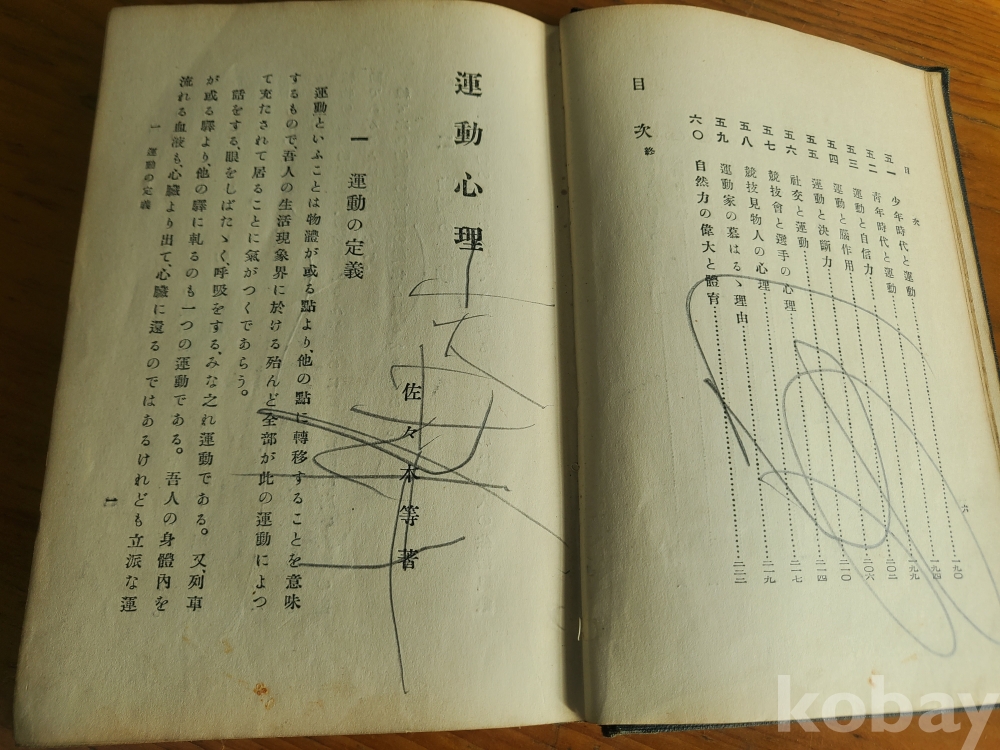 目次
五一 少年時代と運動……一九〇
五二 青年時代と運動……一九四
五三 運動と自信力……一九九
五四 運動と腦作用……二〇二
五五 運動と決斷力……二〇六
五六 社交と運動……二一〇
五七 競技會と選手の心理……二一四
五八 競技見物人の心理……二一七
五九 運動家の慕はるゝ理由……二一九
六〇 自然力の偉大と體育……二二二
目次終
六
運動心理
佐々木等著
一 運動の定義
運動といふことは物體が或る點より、他の點に轉移することを意味
するもので、吾人の生活現象界に於ける殆んど全部が此の運動によつ
て充たされて居ることに氣がつくであらう。
話をする、眼をしばたゝく、呼吸をする、みな之れ運動である。又、列車
が或る驛より、他の驛に軋るのも一つの運動である。吾人の身體內を
流れる血液も、心臟より出て、心臟に還るのではあるけれども立派な運
一 運動の定義
一
kobay